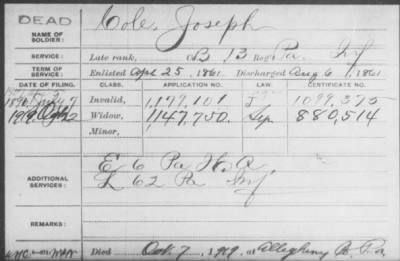 DEAD
NAME OF SOLDIER: Cole, Joseph
SERVICE: Late rank, B 13 Reg't Pa Inf
TERM OF SERVICE: Enlisted Apr 25, 1861 Discharged Aug 6, 1861
DATE OF FILING. CLASS. APPLICATION NO. LAW. CERTIFICATE NO.
July 7 Invalid, 1,179,101 1099,375
Widow, 1,147,750. 880,514
Minor,
ADDITIONAL SERVICES: E 6 Pa H.A.
L 62 Pa Inf
REMARKS:
Died Oct. 7, 1919, at Allegheny Co. Pa.